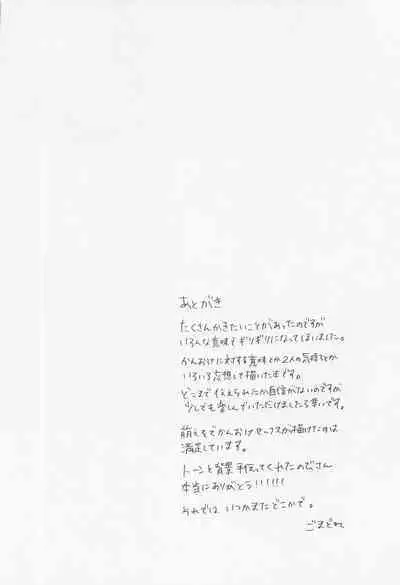 あとがき
たくさんかきたいことがあったのですが
いろんな意味でギリギリになってしまいました。
かんおけに対する意味とか2人の気持ちとか
いろいろ妄想して描いたものです。
どこまで伝えられたか自信がないのですが
少しでも楽しんでいただけましたら幸いです。
萌え でかんおけセックスが描けたのは
満足しています。
トーンと背景手伝ってくれたのびさん
本当にありがとう!!!!!!
それでは いつかまたどこかで。